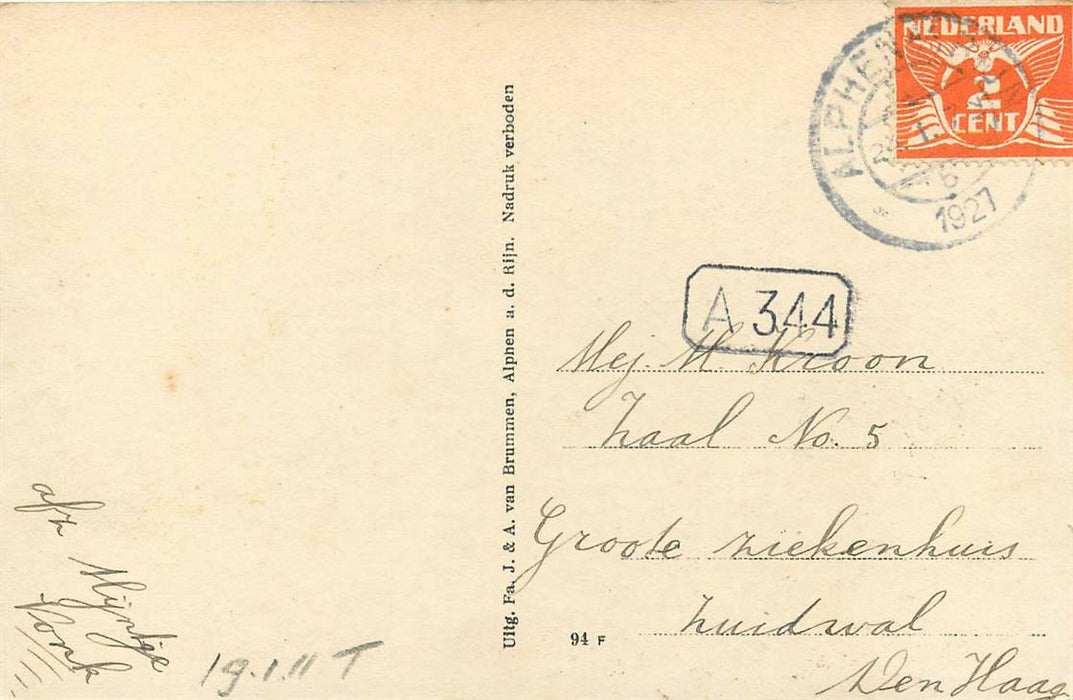 NEDERLAND
2
CENT
ALPHEN
1927
A 344
Mej. M. Kroon
Zaal No. 5
Groote ziekenhuis
Zuidwal
Den Haag
Uitg. Fa. J. & A. van Brummen, Alphen a. d. Rijn. Nadruk verboden
94 F
afz Mijntje
Vonk
19.1.11 T